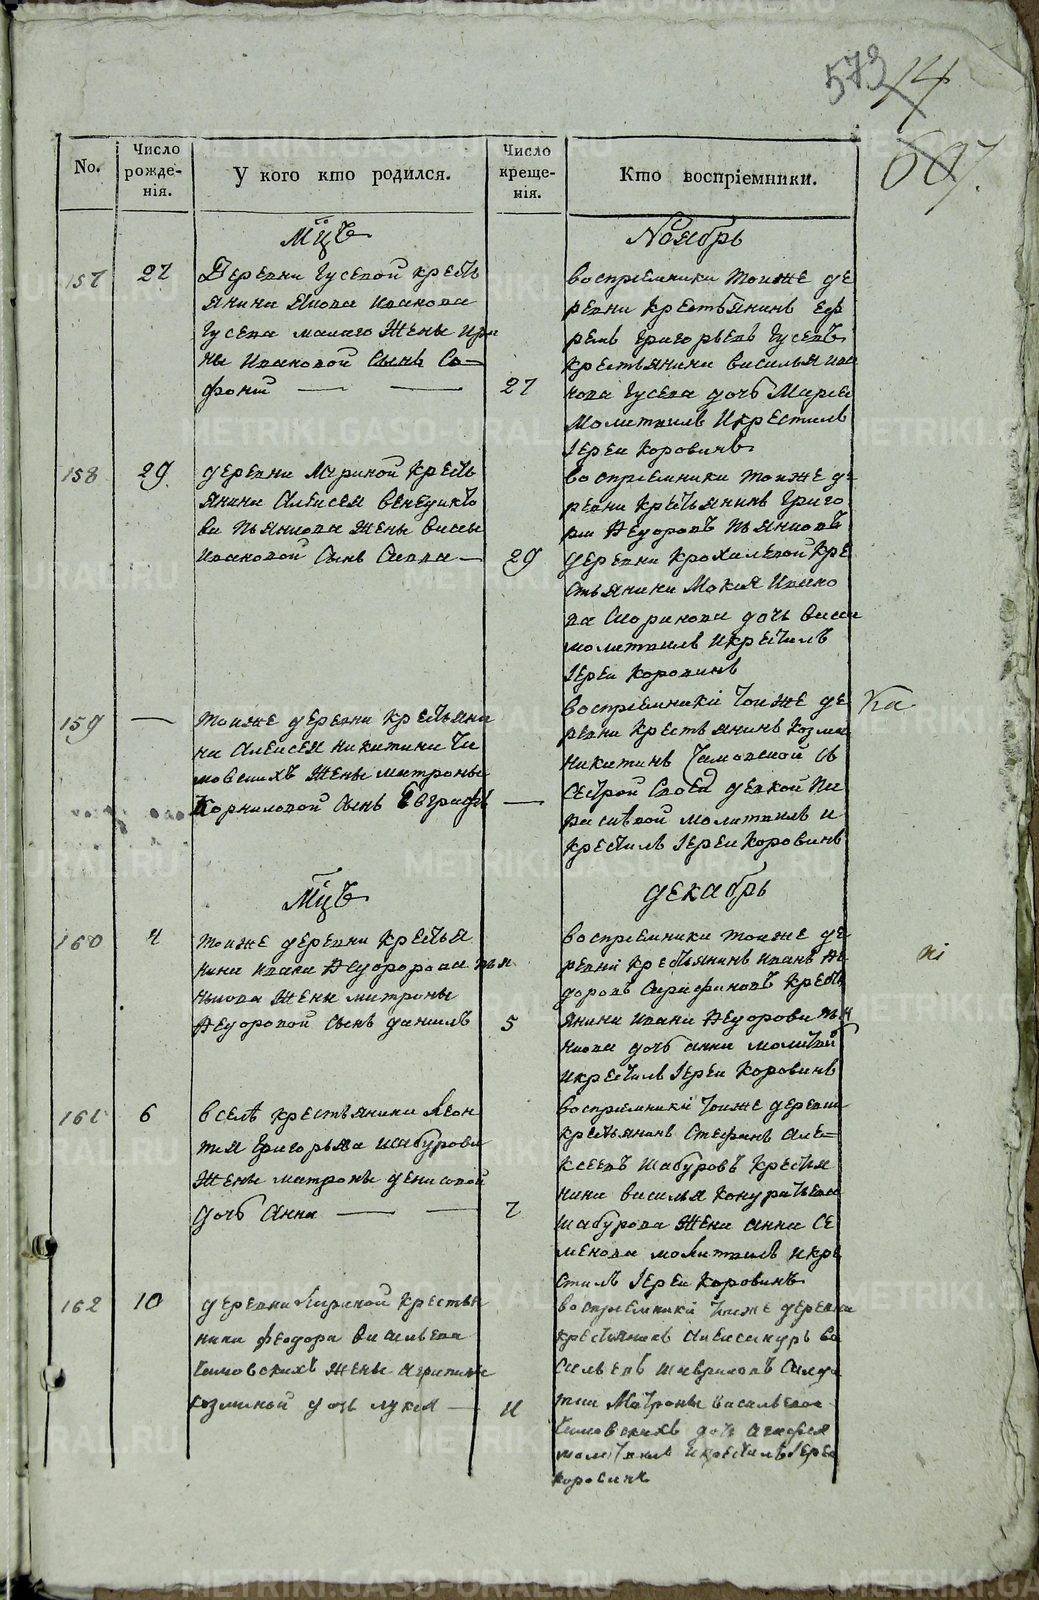 573
14
No.
Число рожде-нія.
У кого кто родился.
Число креще-нія.
Кто воспріемники.
Мцъ
Ноябрь
157
27
Деревни Гусевой кресть
янина Якова Иванова
Гусева малаго жены Ири
ны Ивановой сынъ Со-
фоній
27
воспріемники тоиже де
ревни крестьянинъ Еф
ремъ Григорьевъ Гусевъ
крестьянина Василья Ива
нова Гусева дочь Марѳа
молитвилъ и крестилъ
Іереи Коровинъ
158
29
деревни кресть
янина Алексея Венедикто
ва Пьянкова жены Васы
Ивановой сынъ Савва
29
воспріемники тоиже де
ревни крестьянинъ Григо
рии Ѳедоровъ Пьянковъ
деревни Крохалевой кре
стьянина Мокия Ивано
ва дочь Васса
молитвилъ и крестилъ
Іереи Коровинъ
159
тоиже деревни крестьяни
на Алексея Никитина Чи
мовскихъ жены матроны
Корниловой сынъ Евграфъ
воспріемникі тоиже де
ревни крестьянинъ Козма
Никитинъ Съ
сестрой своеи девкой
молитвилъ и
крестилъ Іереи Коровинъ
Мцъ
декабрь
160
4
тоиже деревни крестья
нина Ивана Ѳедорова Пья
нкова жены матроны
Ѳедоровой сынъ данилъ
5
воспріемники тоиже де
ревни крестьянинъ Иванъ Ѳе
доровъ кресть
янина Ивана Ѳедорова Пья
нкова дочь анна молитвил
и крестилъ Іереи Коровинъ
161
6
в селѣ крестьянина Леон
тия Григорьева Шабурова
жены матроны денисовой
дочь Анна
7
воспріемникі тоиже деревни
крестьянинъ Стефанъ Але-
ксеевъ Шабуровъ крестья
нина Василья Кондратьева
Шабурова жена анна Се
менова молитвилъ и кре
стилъ Іереи Коровинъ
162
10
деревни крестья
нина Феодора Васильева
Чимовскихъ жены агрипины
козминой дочь лукия
11
воспріемникі тоиже деревни
крестьянинъ Александръ Ва
сильевъ
Матроны Васильевой
Чимовскихъ дочь агафья
молитвилъ и крестилъ Іереи
Коровинъ
METRIKI.GASO-URAL.RU